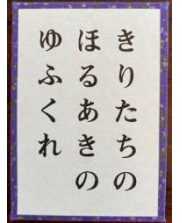 きりたちの
ほるあきの
ゆふくれ